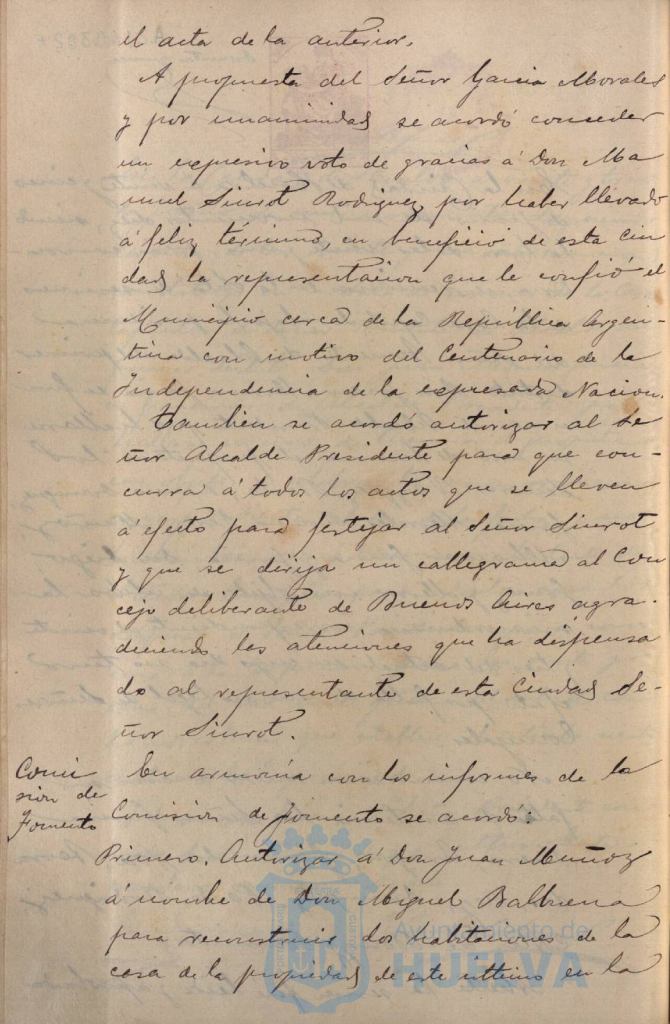 el acta de la anterior.
A propuesta del Señor Garcia Morales
y por unanimidad se acordó conceder
un expresivo voto de gracias á Don Ma
nuel Siurot Rodriguez por haber llevado
á feliz término, en beneficio de esta ciu
dad la representacion que le confió el
Municipio cerca de la República Argen-
tina con motivo del Centenario de la
Independencia de la expresada Nacion.
Tambien se acordó autorizar al Se
ñor Alcalde Presidente para que con-
curra á todos los actos que se lleven
á efecto para festejar al Señor Siurot
y que se dirija un callegrama al Con
cejo deliberante de Buenos Aires agra-
deciendo las atenciones que ha dispensa
do al representante de esta Ciudad Se-
ñor Siurot.
Comi
sion de
Fomento
En armonía con los informes de la
Comision de fomento se acordó:
Primero. Autorizar á Don Juan Muñoz
á nombre de Don Miguel Balbuena
para reconstruir dos habitaciones de la
casa de la propiedad de este ultimo en la
Ayuntamiento de
HUELVA